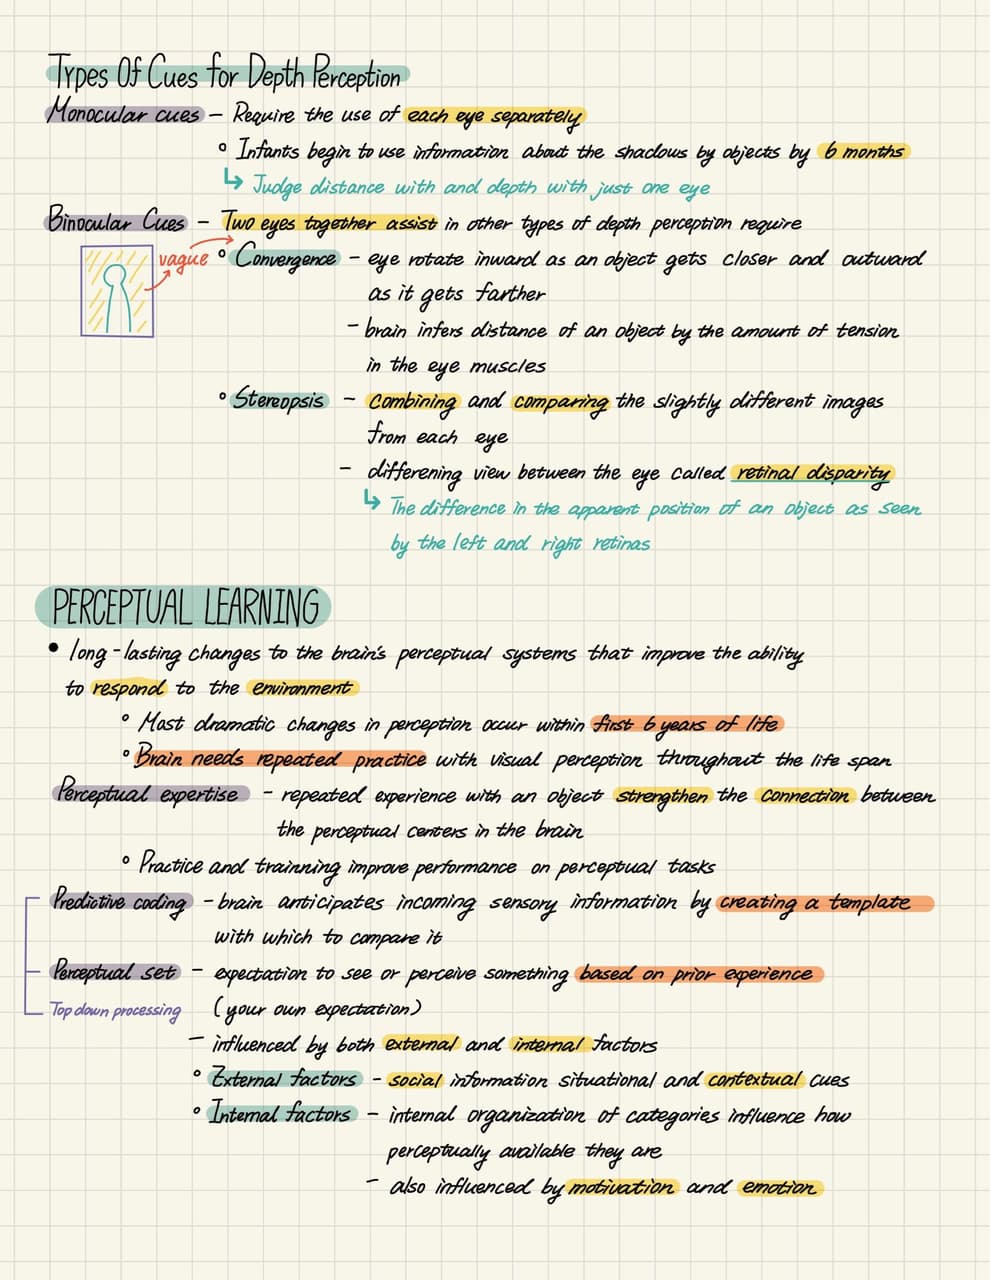 Types Of Cues for Depth Perception
Monocular cues – Require the use of each eye separately
° Infants begin to use information about the shadows by objects by 6 months
↳ Judge distance with and depth with just one eye
Binocular Cues – Two eyes together assist in other types of depth perception require
vague ° Convergence – eye rotate inward as an object gets closer and outward
as it gets farther
– brain infers distance of an object by the amount of tension
in the eye muscles
° Stereopsis – combining and comparing the slightly different images
from each eye
– differening view between the eye called retinal disparity
↳ The difference in the apparent position of an object as seen
by the left and right retinas
PERCEPTUAL LEARNING
• long-lasting changes to the brain's perceptual systems that improve the ability
to respond to the environment
° Most dramatic changes in perception occur within first 6 years of life
° Brain needs repeated practice with visual perception throughout the life span
Perceptual expertise – repeated experience with an object strengthen the connection between
the perceptual centers in the brain
° Practice and trainning improve performance on perceptual tasks
Predictive coding – brain anticipates incoming sensory information by creating a template
with which to compare it
Perceptual set – expectation to see or perceive something based on prior experience
Top down processing (your own expectation)
– influenced by both external and internal factors
° External factors – social information situational and contextual cues
° Internal factors – internal organization of categories influence how
perceptually available they are
– also influenced by motivation and emotion